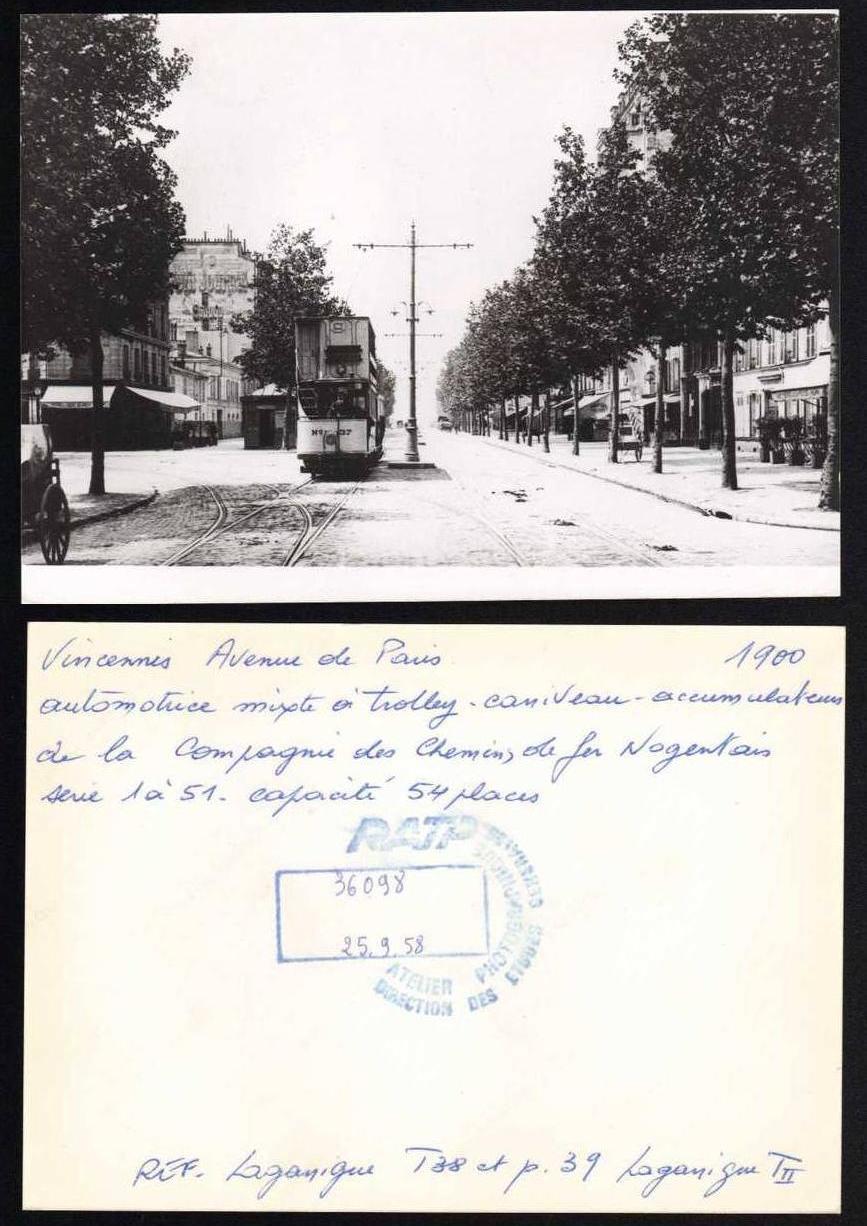 No 37
Vincennes Avenue de Paris 1900
automotrice mixte à trolley - caniveau - accumulateurs
de la Compagnie des Chemins de fer Nogentais
série 1 à 51 - capacité 54 places
RATP
36098
25.9.58
ATELIER PHOTOGRAPHIQUE
DIRECTION DES ETUDES GENERALES
REF. Lagarrigue T38 et p. 39 Lagarrigue TII